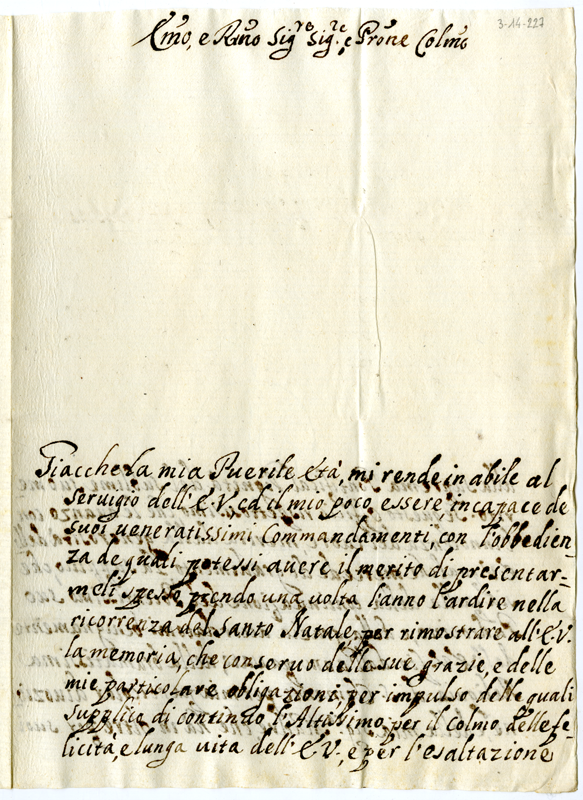 3-14-227
Emo, e Rmo Sig.re Sig.re e Prone Colmo
Giacche la mia Puerile età, mi rende inabile al
seruigio dell'E.V. ed il mio poco essere, incapace de
suoi ueneratissimi Commandamenti, con l'obbedien-
za de quali potessi auere il merito di presentar-
meli spesso prendo una volta l'anno l'ardire nella
ricorrenza del Santo Natale per rimostrare all'E.V.
la memoria, che conseruo delle sue grazie, e delle
mie particolare obligazione per impulso delle quali
supplico di continuo l'Altissimo per il colmo delle fe-
licità, e lunga uita dell'E.V., e per l'esaltazione